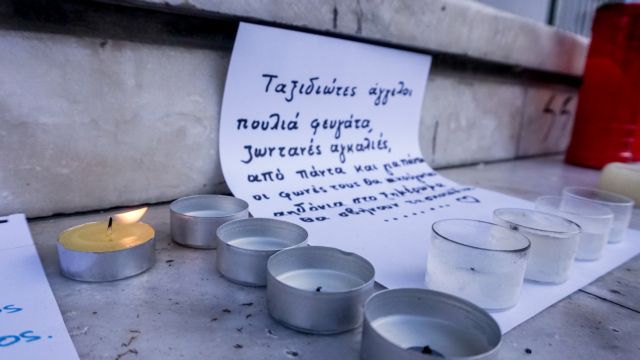 Ταξιδιώτες άγγελοι
πουλιά φευγάτα,
ζωντανές αγκαλιές,
από πάντα και για πάντα
οι φωνές τους θα
αηδόνια στο ξημέρωμα
θα σβήνουν το
ος.